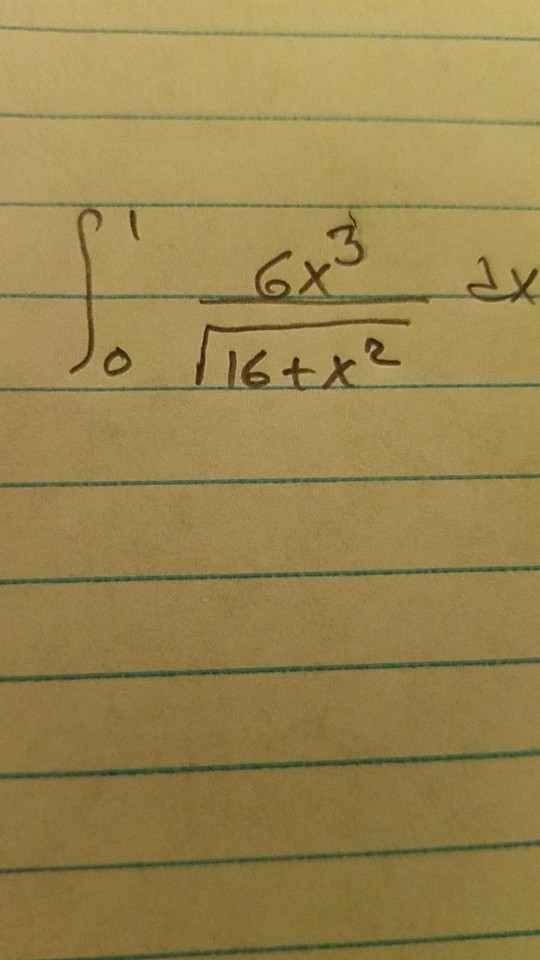 ∫₀¹ 6x³/√(16+x²) dx